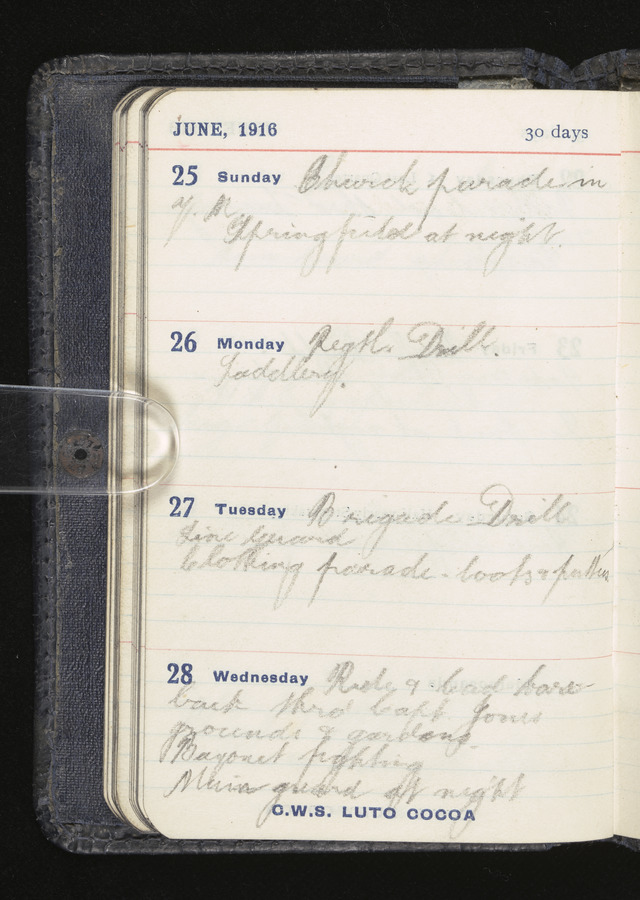 JUNE, 1916 30 days
25 Sunday Church parade in
Y. M.
Springfield at night.
26 Monday Regtl. Drill.
Saddlery.
27 Tuesday Brigade Drill
Line Guard
Clothing parade - boots & putties
28 Wednesday Ride & lead bare
back thro' Capt. Jones
grounds & gardens.
Bayonet fighting
Main guard at night
C.W.S. LUTO COCOA